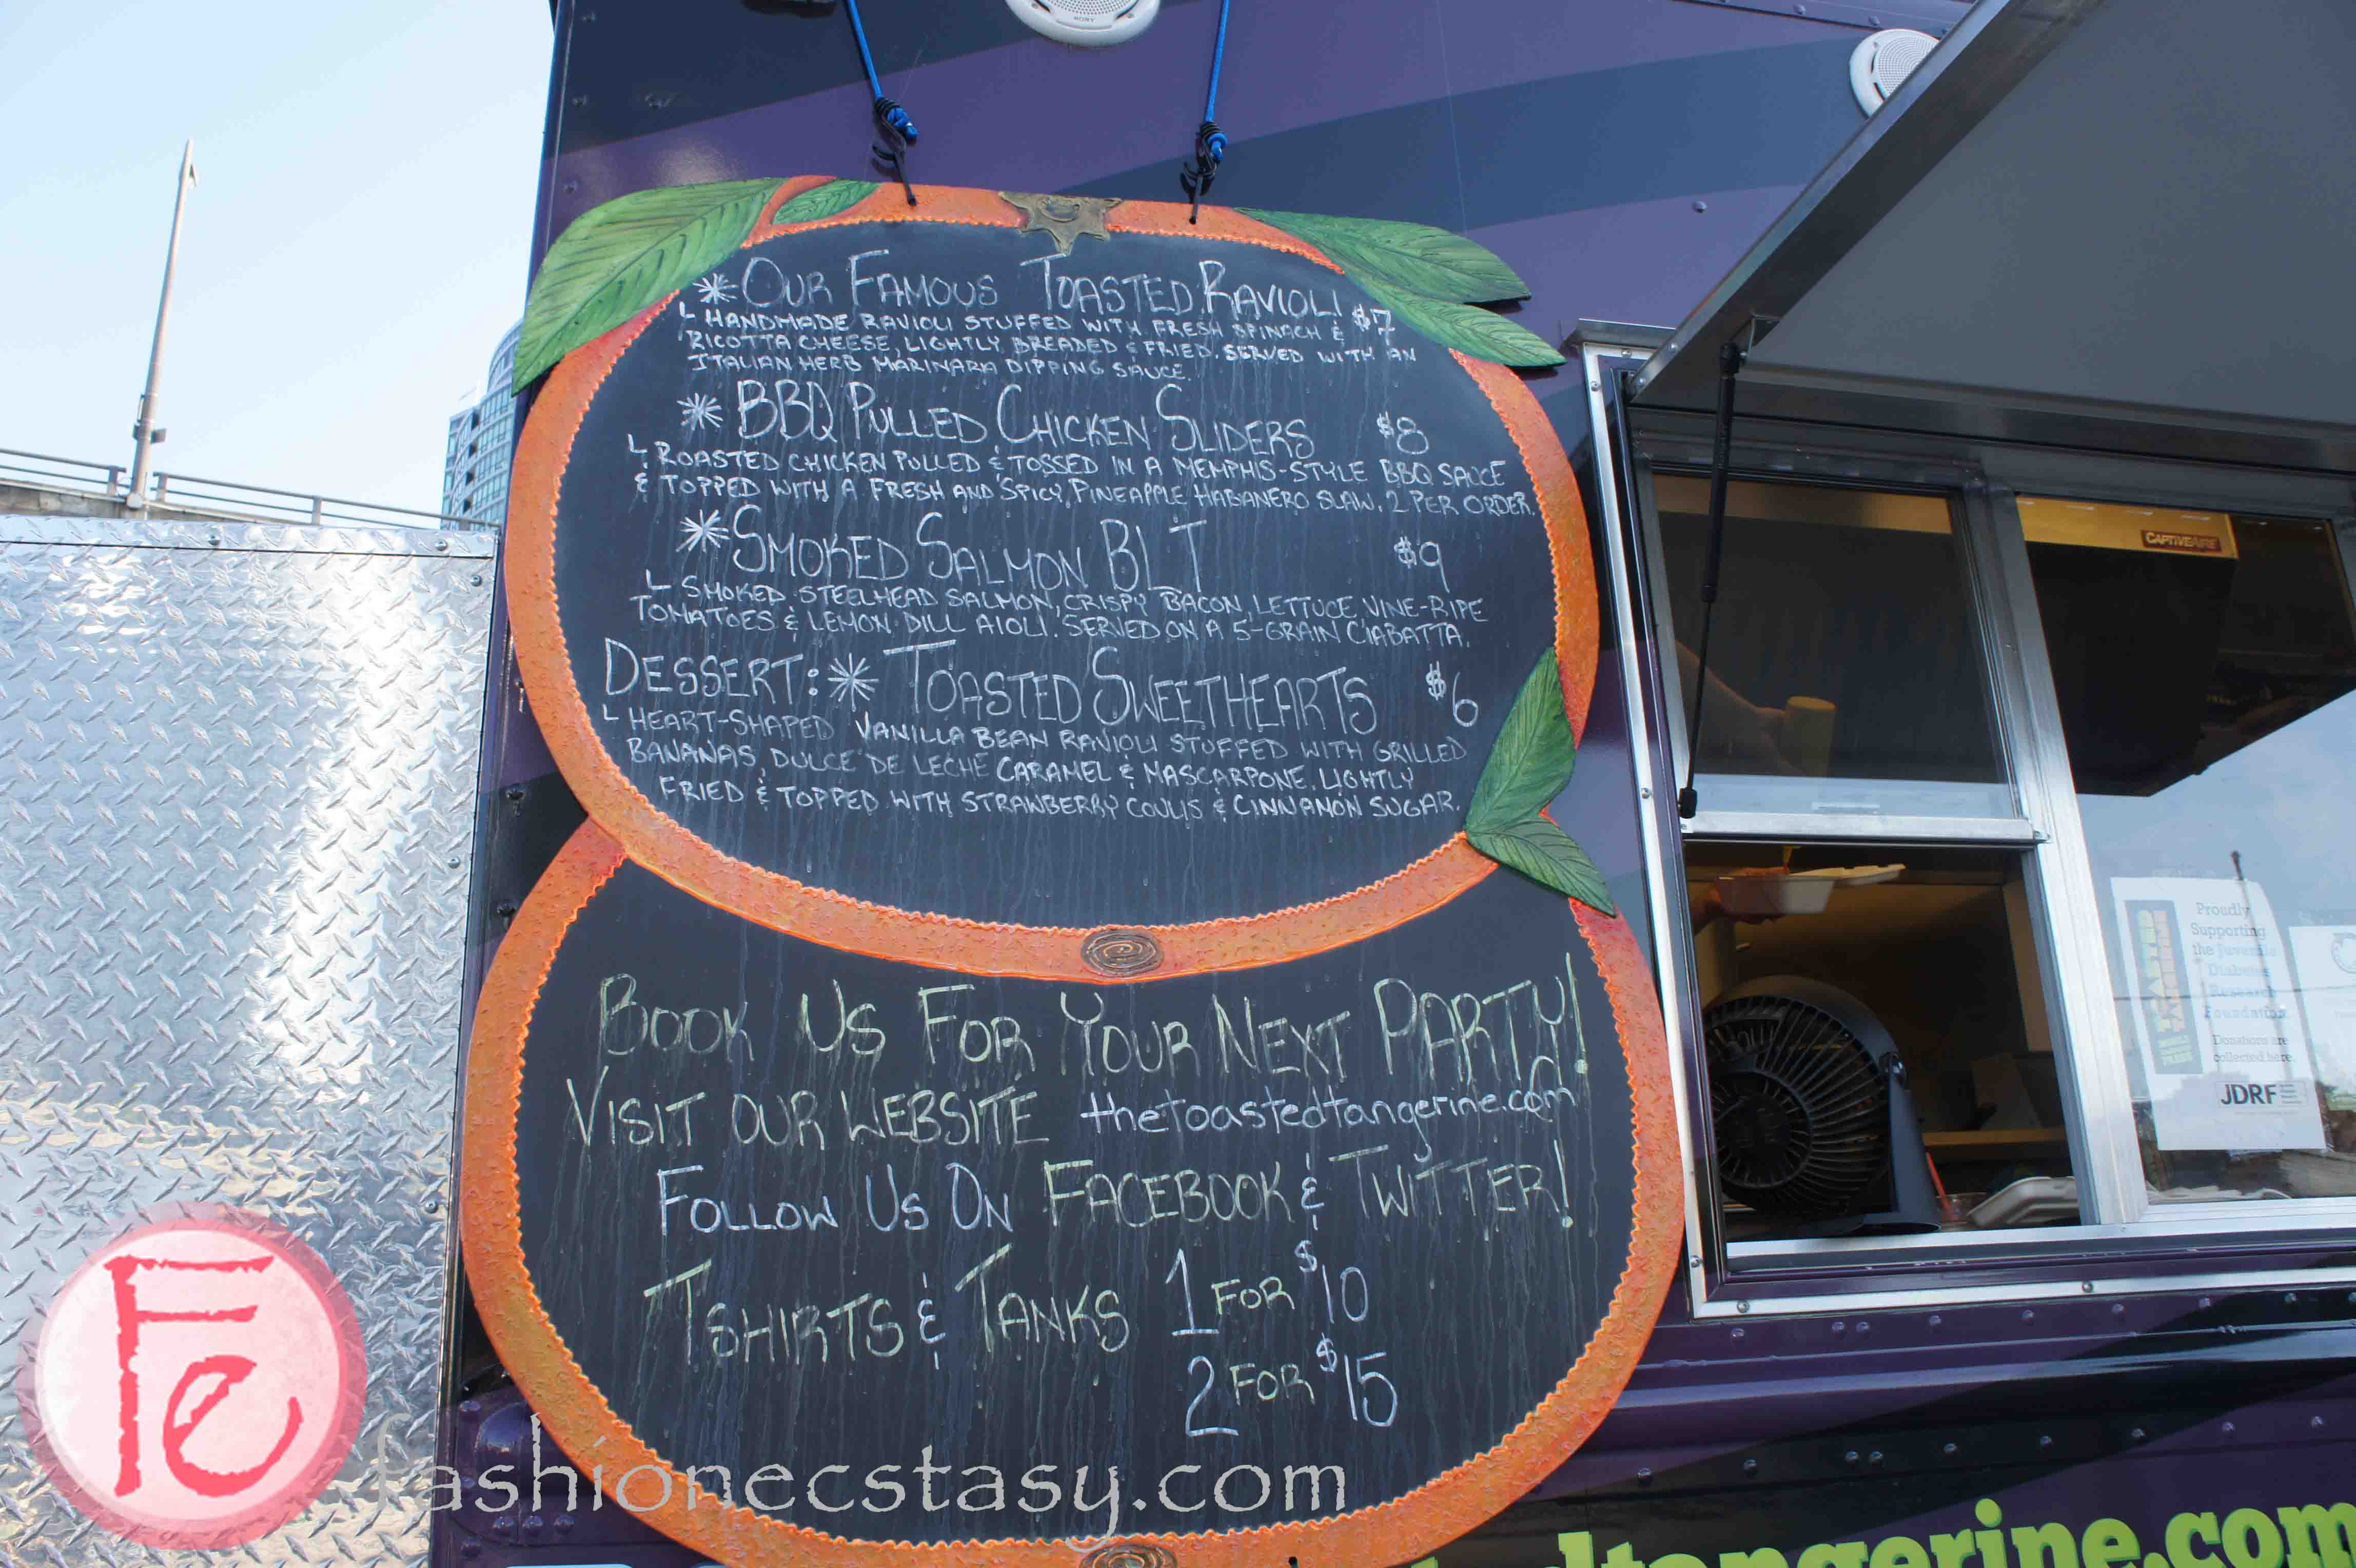 SONY
* OUR FAMOUS TOASTED RAVIOLI $7
HANDMADE RAVIOLI STUFFED WITH FRESH SPINACH &
RICOTTA CHEESE, LIGHTLY BREADED & FRIED. SERVED WITH AN
ITALIAN HERB MARINARA DIPPING SAUCE.
* BBQ PULLED CHICKEN SLIDERS $8
ROASTED CHICKEN PULLED & TOSSED IN A MEMPHIS-STYLE BBQ SAUCE
& TOPPED WITH A FRESH AND SPICY PINEAPPLE HABANERO SLAW. 2 PER ORDER.
* SMOKED SALMON BLT $9
SMOKED STEELHEAD SALMON, CRISPY BACON, LETTUCE, VINE-RIPE
TOMATOES & LEMON DILL AIOLI. SERVED ON A 5-GRAIN CIABATTA.
DESSERT: * TOASTED SWEETHEARTS $6
HEART-SHAPED VANILLA BEAN RAVIOLI STUFFED WITH GRILLED
BANANAS, DULCE DE LECHE CARAMEL & MASCARPONE. LIGHTLY
FRIED & TOPPED WITH STRAWBERRY COULIS & CINNAMON SUGAR.
BOOK US FOR YOUR NEXT PARTY!
VISIT OUR WEBSITE thetoastedtangerine.com
FOLLOW US ON FACEBOOK & TWITTER!
TSHIRTS & TANKS 1 FOR $10
2 FOR $15
CAPTIVEAIRE
Proudly
Supporting
the Juvenile
Diabetes
Research
Foundation.
Donations are
collected here
JDRF
Fe
fashionecstasy.com
dtangerine.com